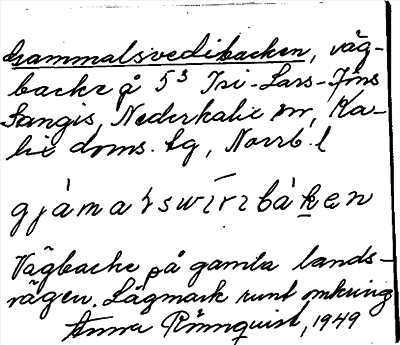 Gammalsvedibacken, väg-
backe på 5³ Isi-Lars-Jöns
Sangis, Nederkalix sn, Ka-
lix doms. lg, Norrb. l
gjàmaɫswīrıbàken
Vägbacke på gamla lands-
vägen. Lägmark runt omkring
Anna Rönnquist, 1949